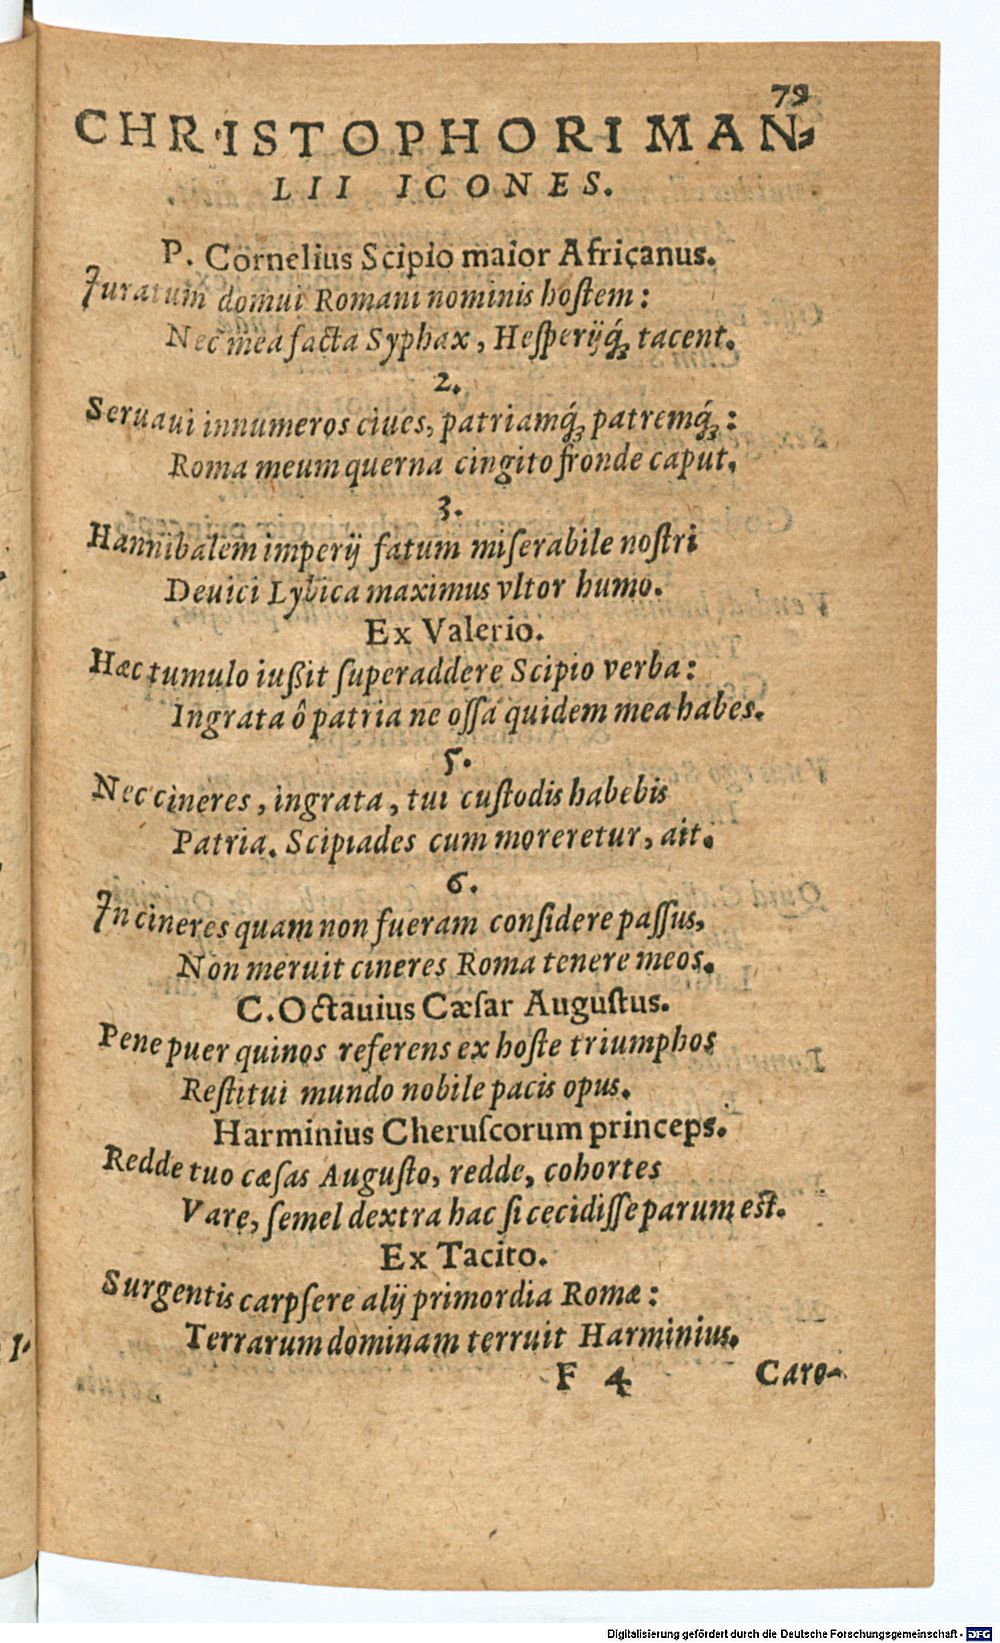 79
CHRISTOPHORI MAN-
LII ICONES.
P. Cornelius Scipio maior Africanus.
Juratum domui Romani nominis hoſtem:
Nec mea facta Syphax, Heſperijq́; tacent.
2.
Seruaui innumeros ciues, patriamq́; patremq́;:
Roma meum querna cingito fronde caput.
3.
Hannibalem imperij fatum miſerabile noſtri
Deuici Lybica maximus vltor humo.
Ex Valerio.
Hæc tumulo iußit ſuperaddere Scipio verba:
Ingrata ô patria ne oſſa quidem mea habes.
5.
Nec cineres, ingrata, tui cuſtodis habebis
Patria. Scipiades cum moreretur, ait.
6.
In cineres quam non fueram conſidere paſſus,
Non meruit cineres Roma tenere meos.
C. Octauius Cæſar Auguſtus.
Pene puer quinos referens ex hoſte triumphos
Reſtitui mundo nobile pacis opus.
Harminius Cheruſcorum princeps.
Redde tuo cæſas Auguſto, redde, cohortes
Vare, ſemel dextra hac ſi cecidiſſe parum eſt.
Ex Tacito.
Surgentis carpſere alij primordia Romæ:
Terrarum dominam terruit Harminius.
F 4 Caro-
I.
Digitalisierung gefördert durch die Deutsche Forschungsgemeinschaft - DFG